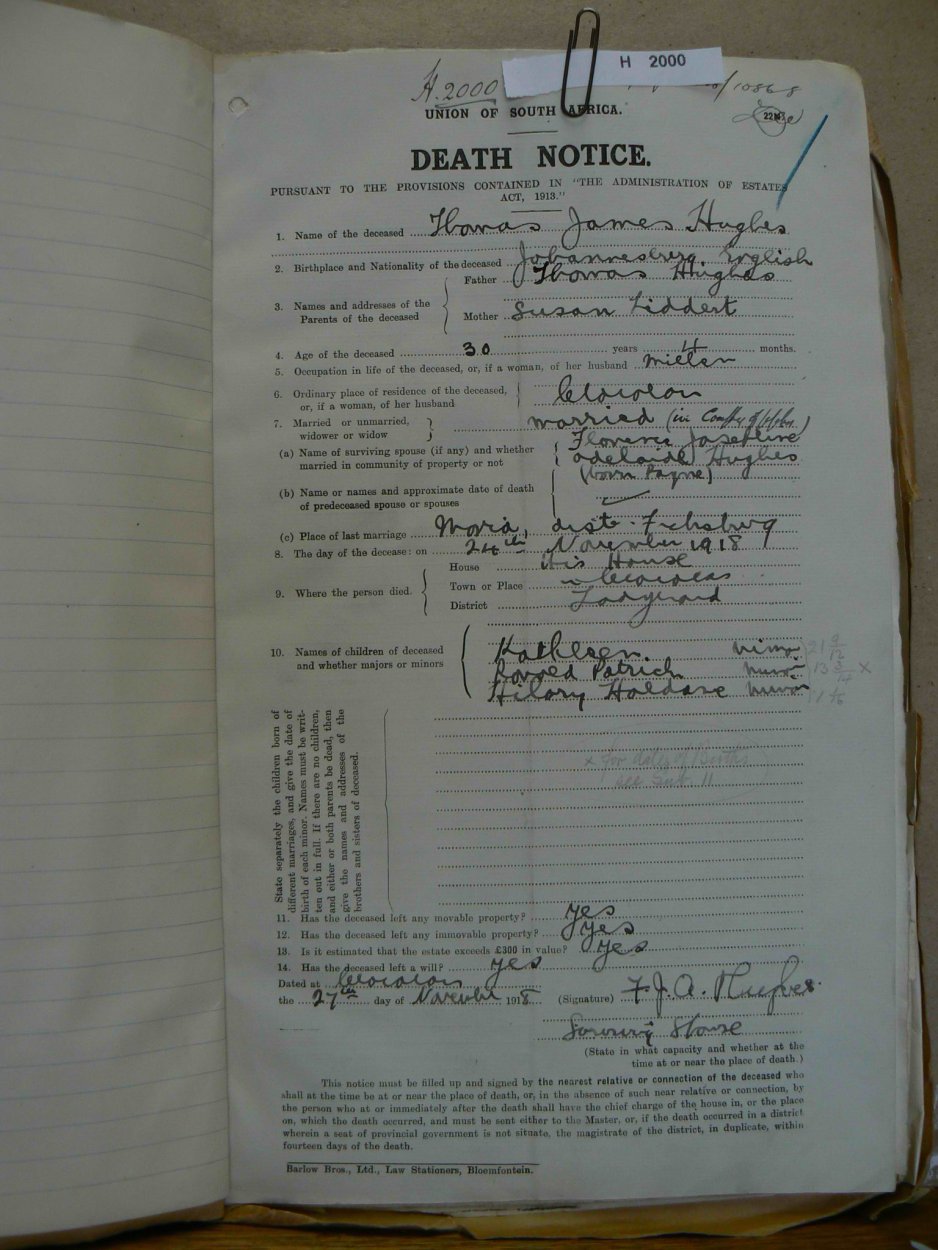 H 2000
H. 2000 /10868
UNION OF SOUTH AFRICA.
DEATH NOTICE.
PURSUANT TO THE PROVISIONS CONTAINED IN "THE ADMINISTRATION OF ESTATES
ACT, 1913."
1. Name of the deceased Thomas James Hughes
2. Birthplace and Nationality of the deceased Johannesburg. English
3. Names and addresses of the Parents of the deceased
Father Thomas Hughes
Mother Susan Liddert
4. Age of the deceased 30 years 4 months.
5. Occupation in life of the deceased, or, if a woman, of her husband
6. Ordinary place of residence of the deceased, or, if a woman, of her husband Clocolan
7. Married or unmarried, widower or widow married (in
(a) Name of surviving spouse (if any) and whether married in community of property or not
Florence Josephine
Adelaide Hughes
(born Payne)
(b) Name or names and approximate date of death of predeceased spouse or spouses
(c) Place of last marriage Moria, dist. Ficksburg
8. The day of the decease: on 24th November 1918
9. Where the person died.
House His House
Town or Place Clocolan
District Ladybrand
10. Names of children of deceased and whether majors or minors
Kathleen. minor
Ronald Patrick minor
Hilary Haldane minor
x for dates of births
see
State separately the children born of
different marriages, and give the date of
birth of each minor. Names must be writ-
ten out in full. If there are no children,
and either or both parents be dead, then
give the names and addresses of the
brothers and sisters of deceased.
11. Has the deceased left any movable property? yes
12. Has the deceased left any immovable property? yes
13. Is it estimated that the estate exceeds £300 in value? yes
14. Has the deceased left a will? yes
Dated at Clocolan
the 27th day of November 1918 (Signature) F. J. A. Hughes.
Surviving Spouse
(State in what capacity and whether at the
time at or near the place of death.)
This notice must be filled up and signed by the nearest relative or connection of the deceased who
shall at the time be at or near the place of death, or, in the absence of such near relative or connection, by
the person who at or immediately after the death shall have the chief charge of the house in, or the place
on, which the death occurred, and must be sent either to the Master, or, if the death occurred in a district
wherein a seat of provincial government is not situate, the magistrate of the district, in duplicate, within
fourteen days of the death.
Barlow Bros., Ltd., Law Stationers, Bloemfontein.